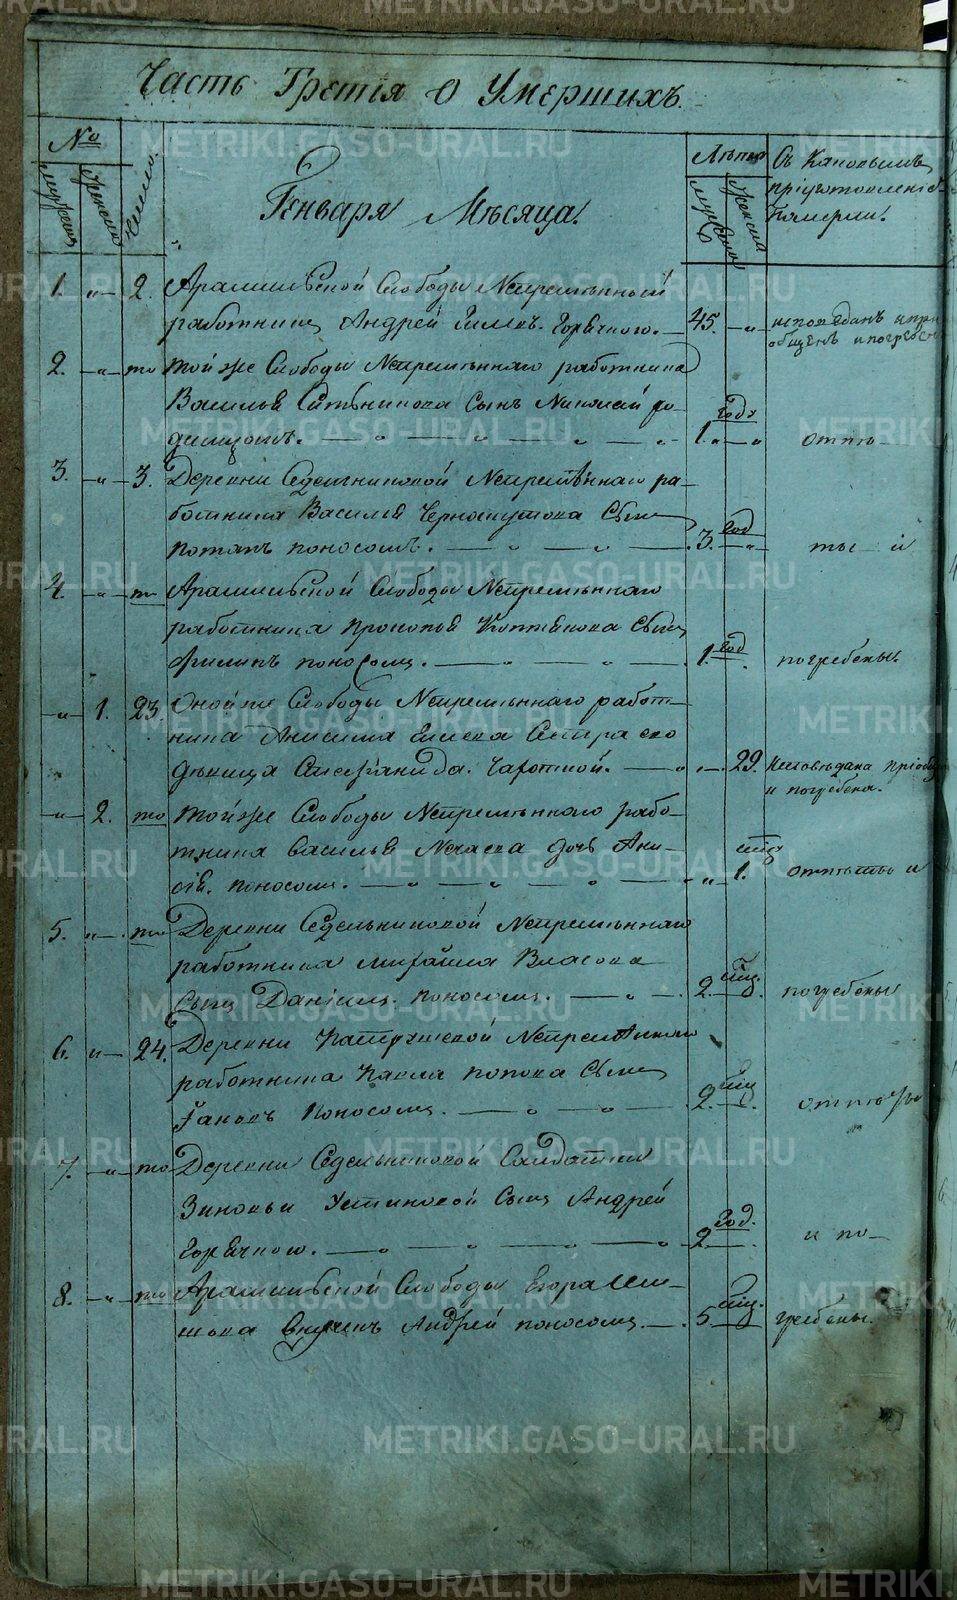 Часть Третія о Умершихъ.
№
мужеска
женска
число.
Генваря Мѣсяца.
Лѣта
мужеска
женска
Съ Каковымъ
пріуготовленіе
Померли.
1. „ 2. Арамильской Слободы Непремѣнный
работникъ Андрей Горячкою. 45. „ исповеданъ и при
общенъ и погребенъ
2. „ то той же Слободы Непремѣннаго работника
Василья Ситникова Сынъ Николай ро-
димцомъ. 1. года отпѣ-
3. „ 3. Деревни Седельниковой Непремѣннаго ра-
ботника Василья Черноскутова Сынъ
Потапъ поносомъ. 3. год ты и
4. „ то Арамильской Слободы Непремѣннаго
работника Прокопья Коптякова Сынъ
Филипъ поносомъ. 1. год погребены.
„ 1. 23. Оной же Слободы Непремѣннаго работ-
ника Анисима Сестра его
дѣвица Чахоткой. „ 29. Исповѣдана пріобщ
и погребена.
„ 2. то той же Слободы Непремѣннаго рабо-
тника Василья Нечаева дочь Ани-
сія. поносомъ. „ 1. мѣц отпѣты и
5. „ то Деревни Седельниковой Непремѣннаго
работника Михайла Власова
Сынъ Даніилъ. поносомъ. 2. мѣц. погребены
6. „ 24. Деревни Патрушевой Непремѣннаго
работника Павла Попова Сынъ
Іаковъ Поносомъ. 2. мѣц отпѣты
7. „ то Деревни Седельниковой Салдатки
Зиновьи Устиновой Сынъ Андрей
Горячкою. 2. год. и по-
8. „ то Арамильской Слободы Егора Ши-
шова Внукъ Андрей поносомъ. 5 мѣц. гребены.
METRIKI.GASO-URAL.RU